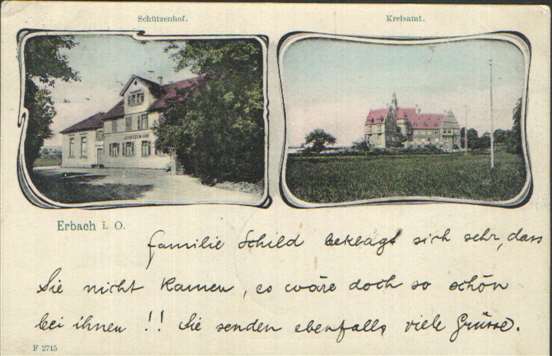 Schützenhof.
Kreisamt.
Erbach i. O.
Familie Schild beklagt sich sehr, dass
Sie nicht kamen, es wäre doch so schön
bei ihnen!! Sie senden ebenfalls viele Grüsse.
F 2715